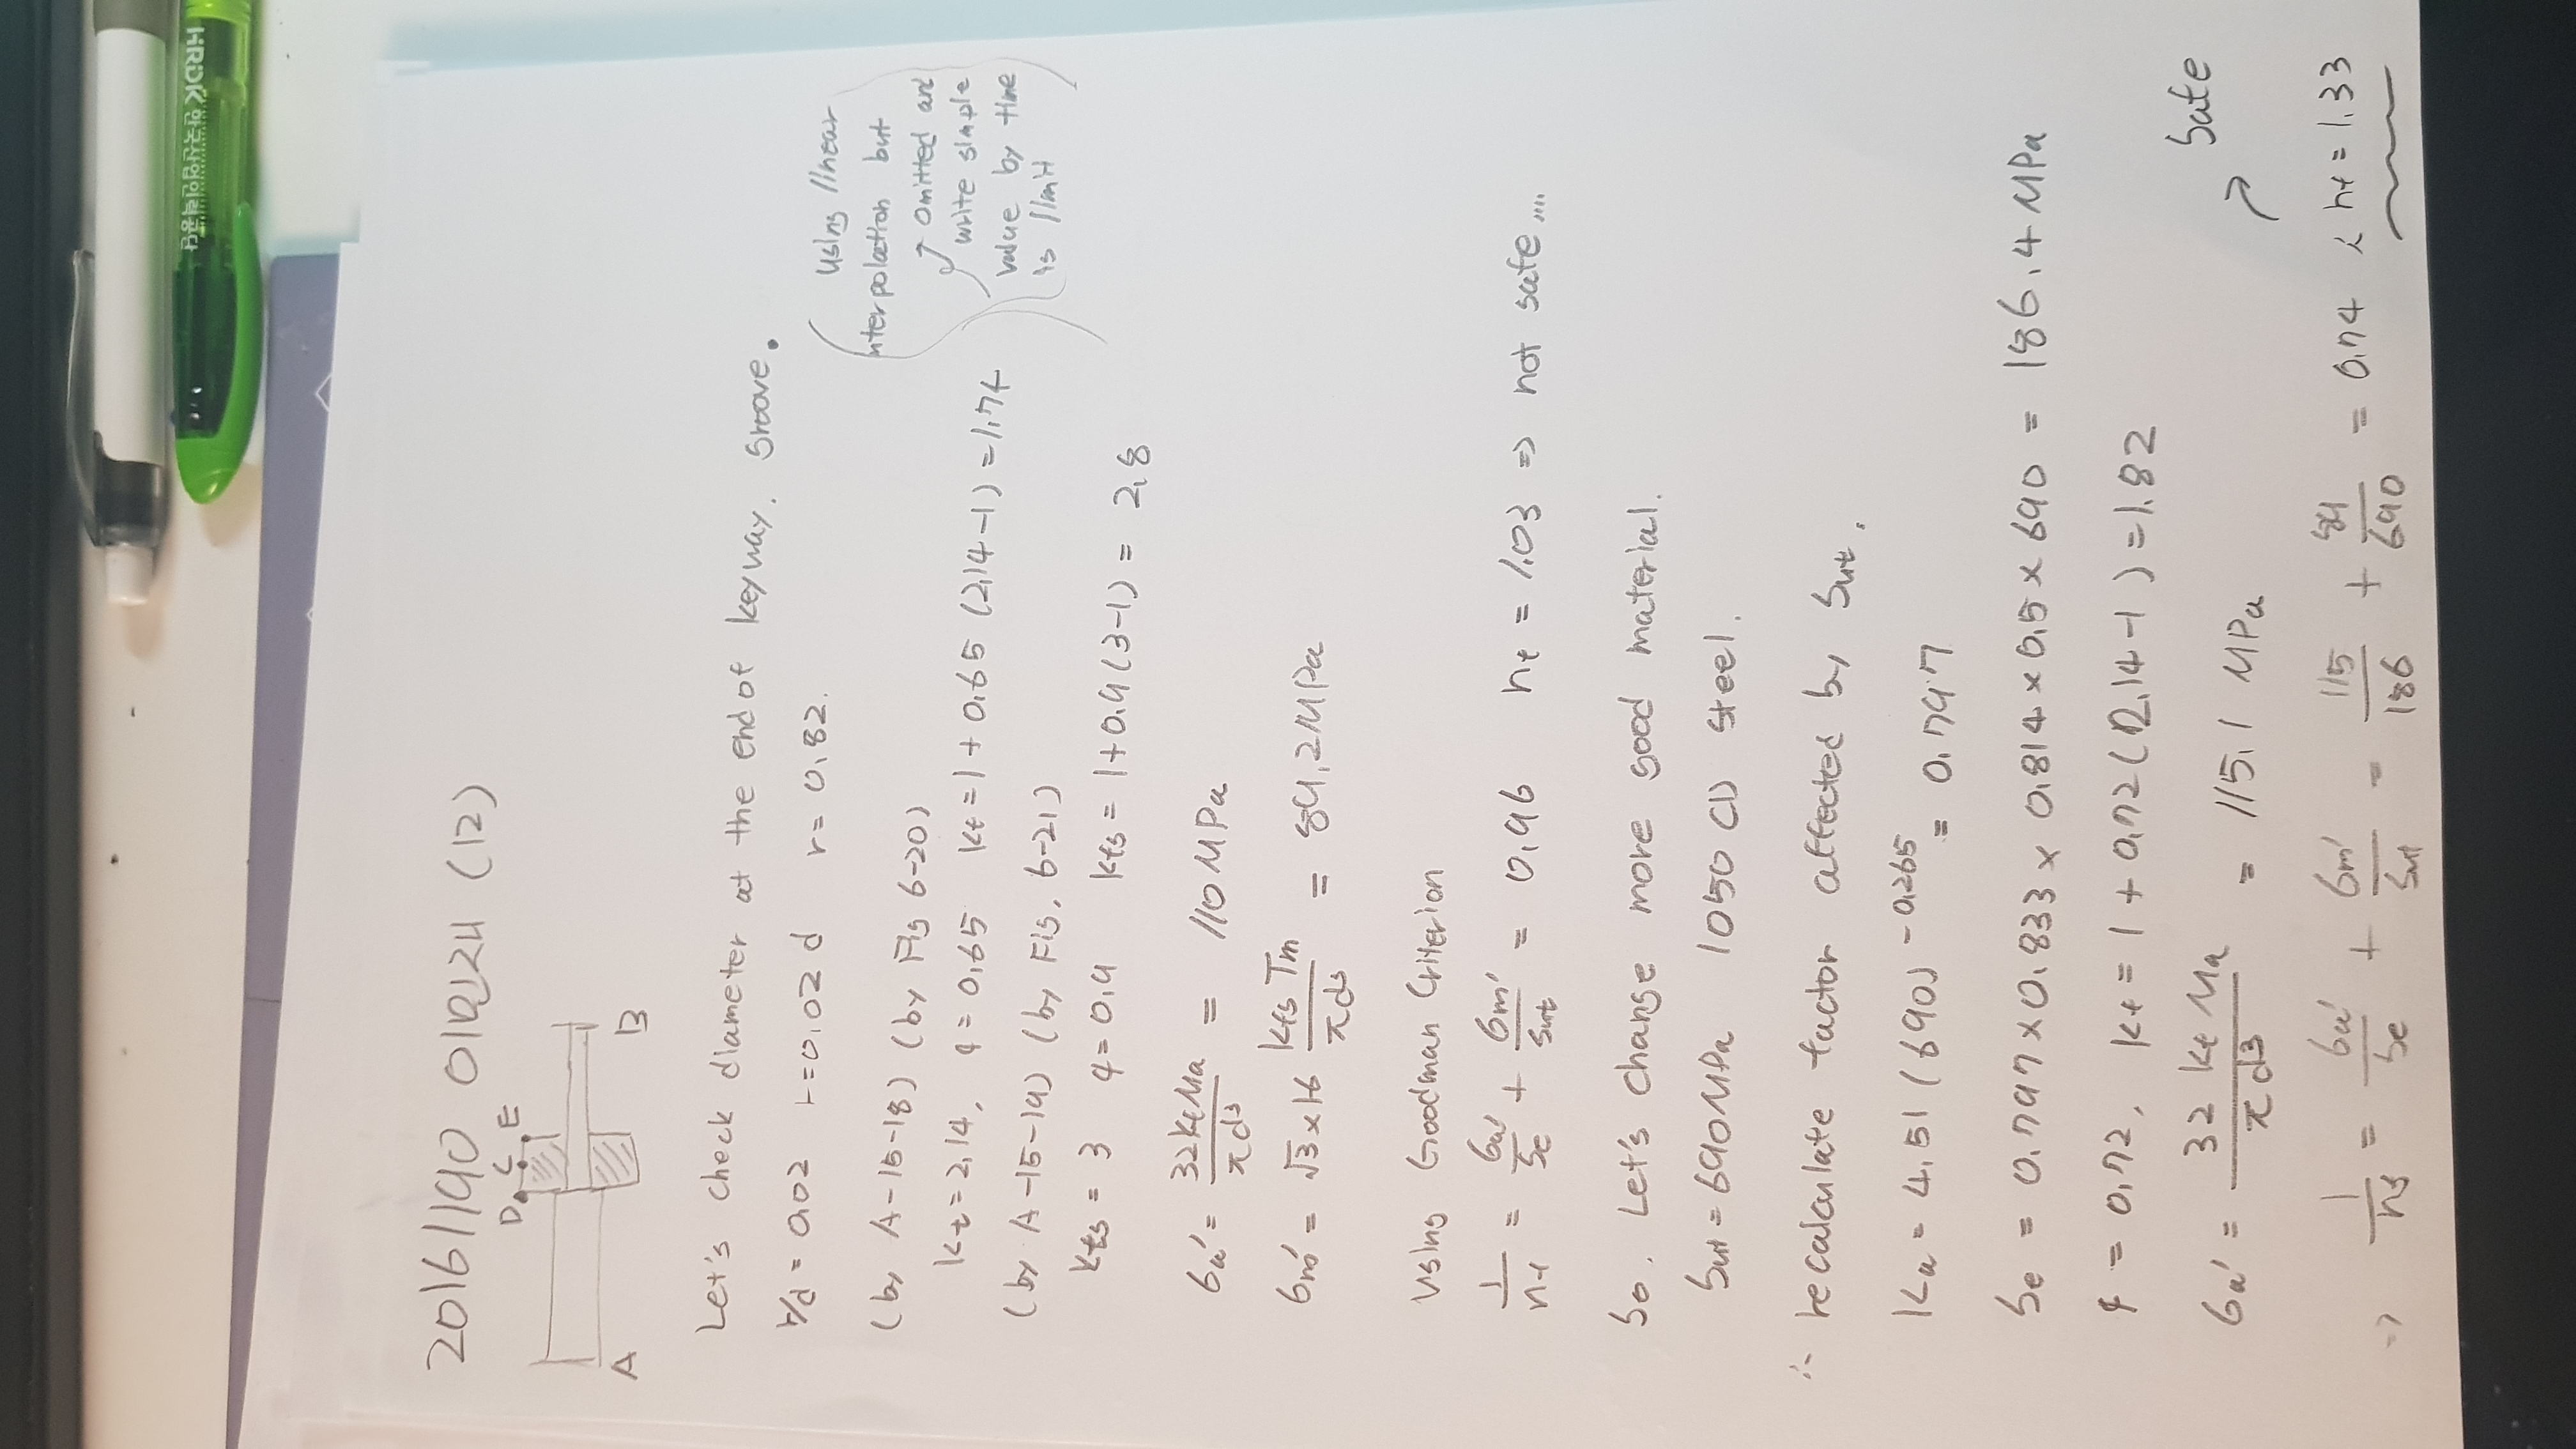 HRDK 한국산업인력공단
20161190 이민재 (12)
D C E
A B
Let's check diameter at the end of keyway. Groove.
r/d = 0.02 r=0.02 d r= 0.82.
(by A-15-18) (by Fig 6-20)
Kt=2.14, q=0.65 kf=1+0.65 (2.14-1)=1.74
(by A-15-19) (by Fig. 6-21)
Kts = 3 q=0.9 kfs= 1+0.9(3-1)= 2.8
using linear
interpolation but
omitted and
write simple
value by time
is limit
σa' = 32KfMa/πd³ = 110MPa
σm' = √3×16 KfsTm/πd³ = 89.2MPa
Using Goodman Criterion
1/nf = σa'/Se + σm'/Sut = 0.96 nf = 1.03 => not safe....
So. Let's change more good material.
Sut=690MPa 1050 CD Steel.
∴ recalculate factor affected by Sut.
Ka= 4.51 (690)^-0.265 = 0.797
Se = 0.797×0.833×0.814×0.5×690 = 186.4MPa
q = 0.72, kf= 1+0.72(2.14-1)=1.82
σa' = 32 kf Ma/πd³ = 115.1 MPa
Safe
=> 1/nf = σa'/Se + σm'/Sut = 115/186 + 89/690 = 0.74 ∴ nf=1.33